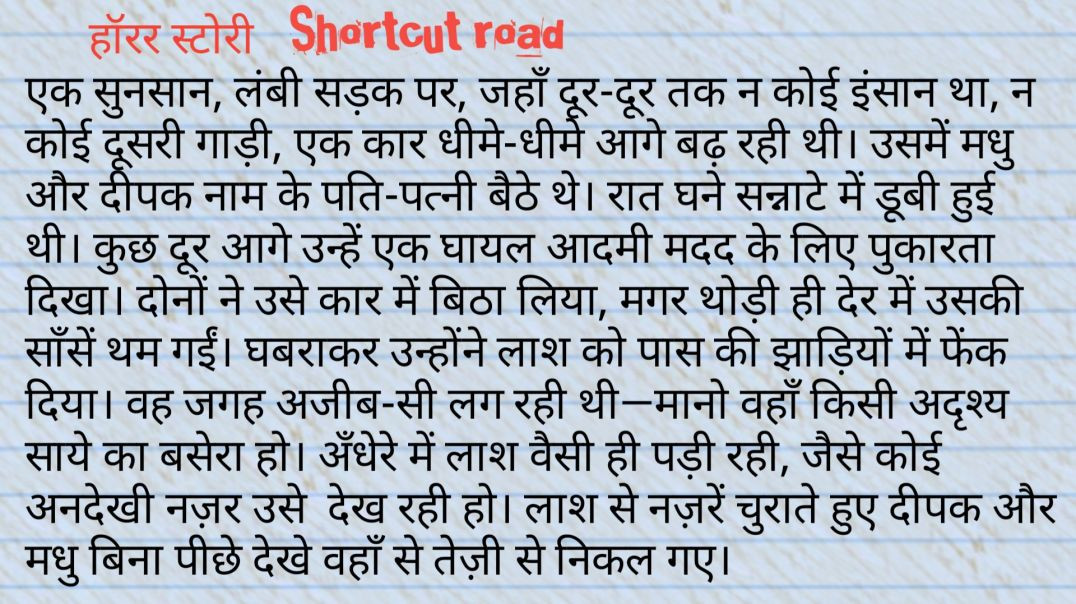 हॉरर स्टोरी Shortcut road
एक सुनसान, लंबी सड़क पर, जहाँ दूर-दूर तक न कोई इंसान था, न
कोई दूसरी गाड़ी, एक कार धीमे-धीमे आगे बढ़ रही थी। उसमें मधु
और दीपक नाम के पति-पत्नी बैठे थे। रात घने सन्नाटे में डूबी हुई
थी। कुछ दूर आगे उन्हें एक घायल आदमी मदद के लिए पुकारता
दिखा। दोनों ने उसे कार में बिठा लिया, मगर थोड़ी ही देर में उसकी
साँसें थम गईं। घबराकर उन्होंने लाश को पास की झाड़ियों में फेंक
दिया। वह जगह अजीब-सी लग रही थी—मानो वहाँ किसी अदृश्य
साये का बसेरा हो। अँधेरे में लाश वैसी ही पड़ी रही, जैसे कोई
अनदेखी नज़र उसे देख रही हो। लाश से नज़रें चुराते हुए दीपक और
मधु बिना पीछे देखे वहाँ से तेज़ी से निकल गए।